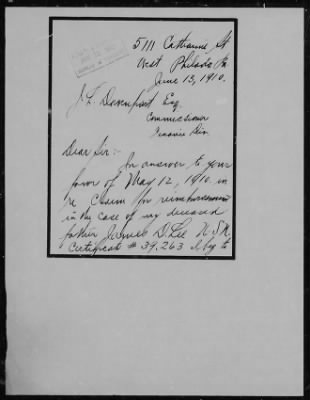 5111 Catharine St
West Philada Pa
June 13, 1910.
J. L. Davenport Esq.
Commissioner
Dear Sir:-
In answer to your
favor of May 12, 1910 in
re Claim for reimbursement
in the case of my deceased
father James D. Lee U.S.N.
Certificate # 39,263 I beg to